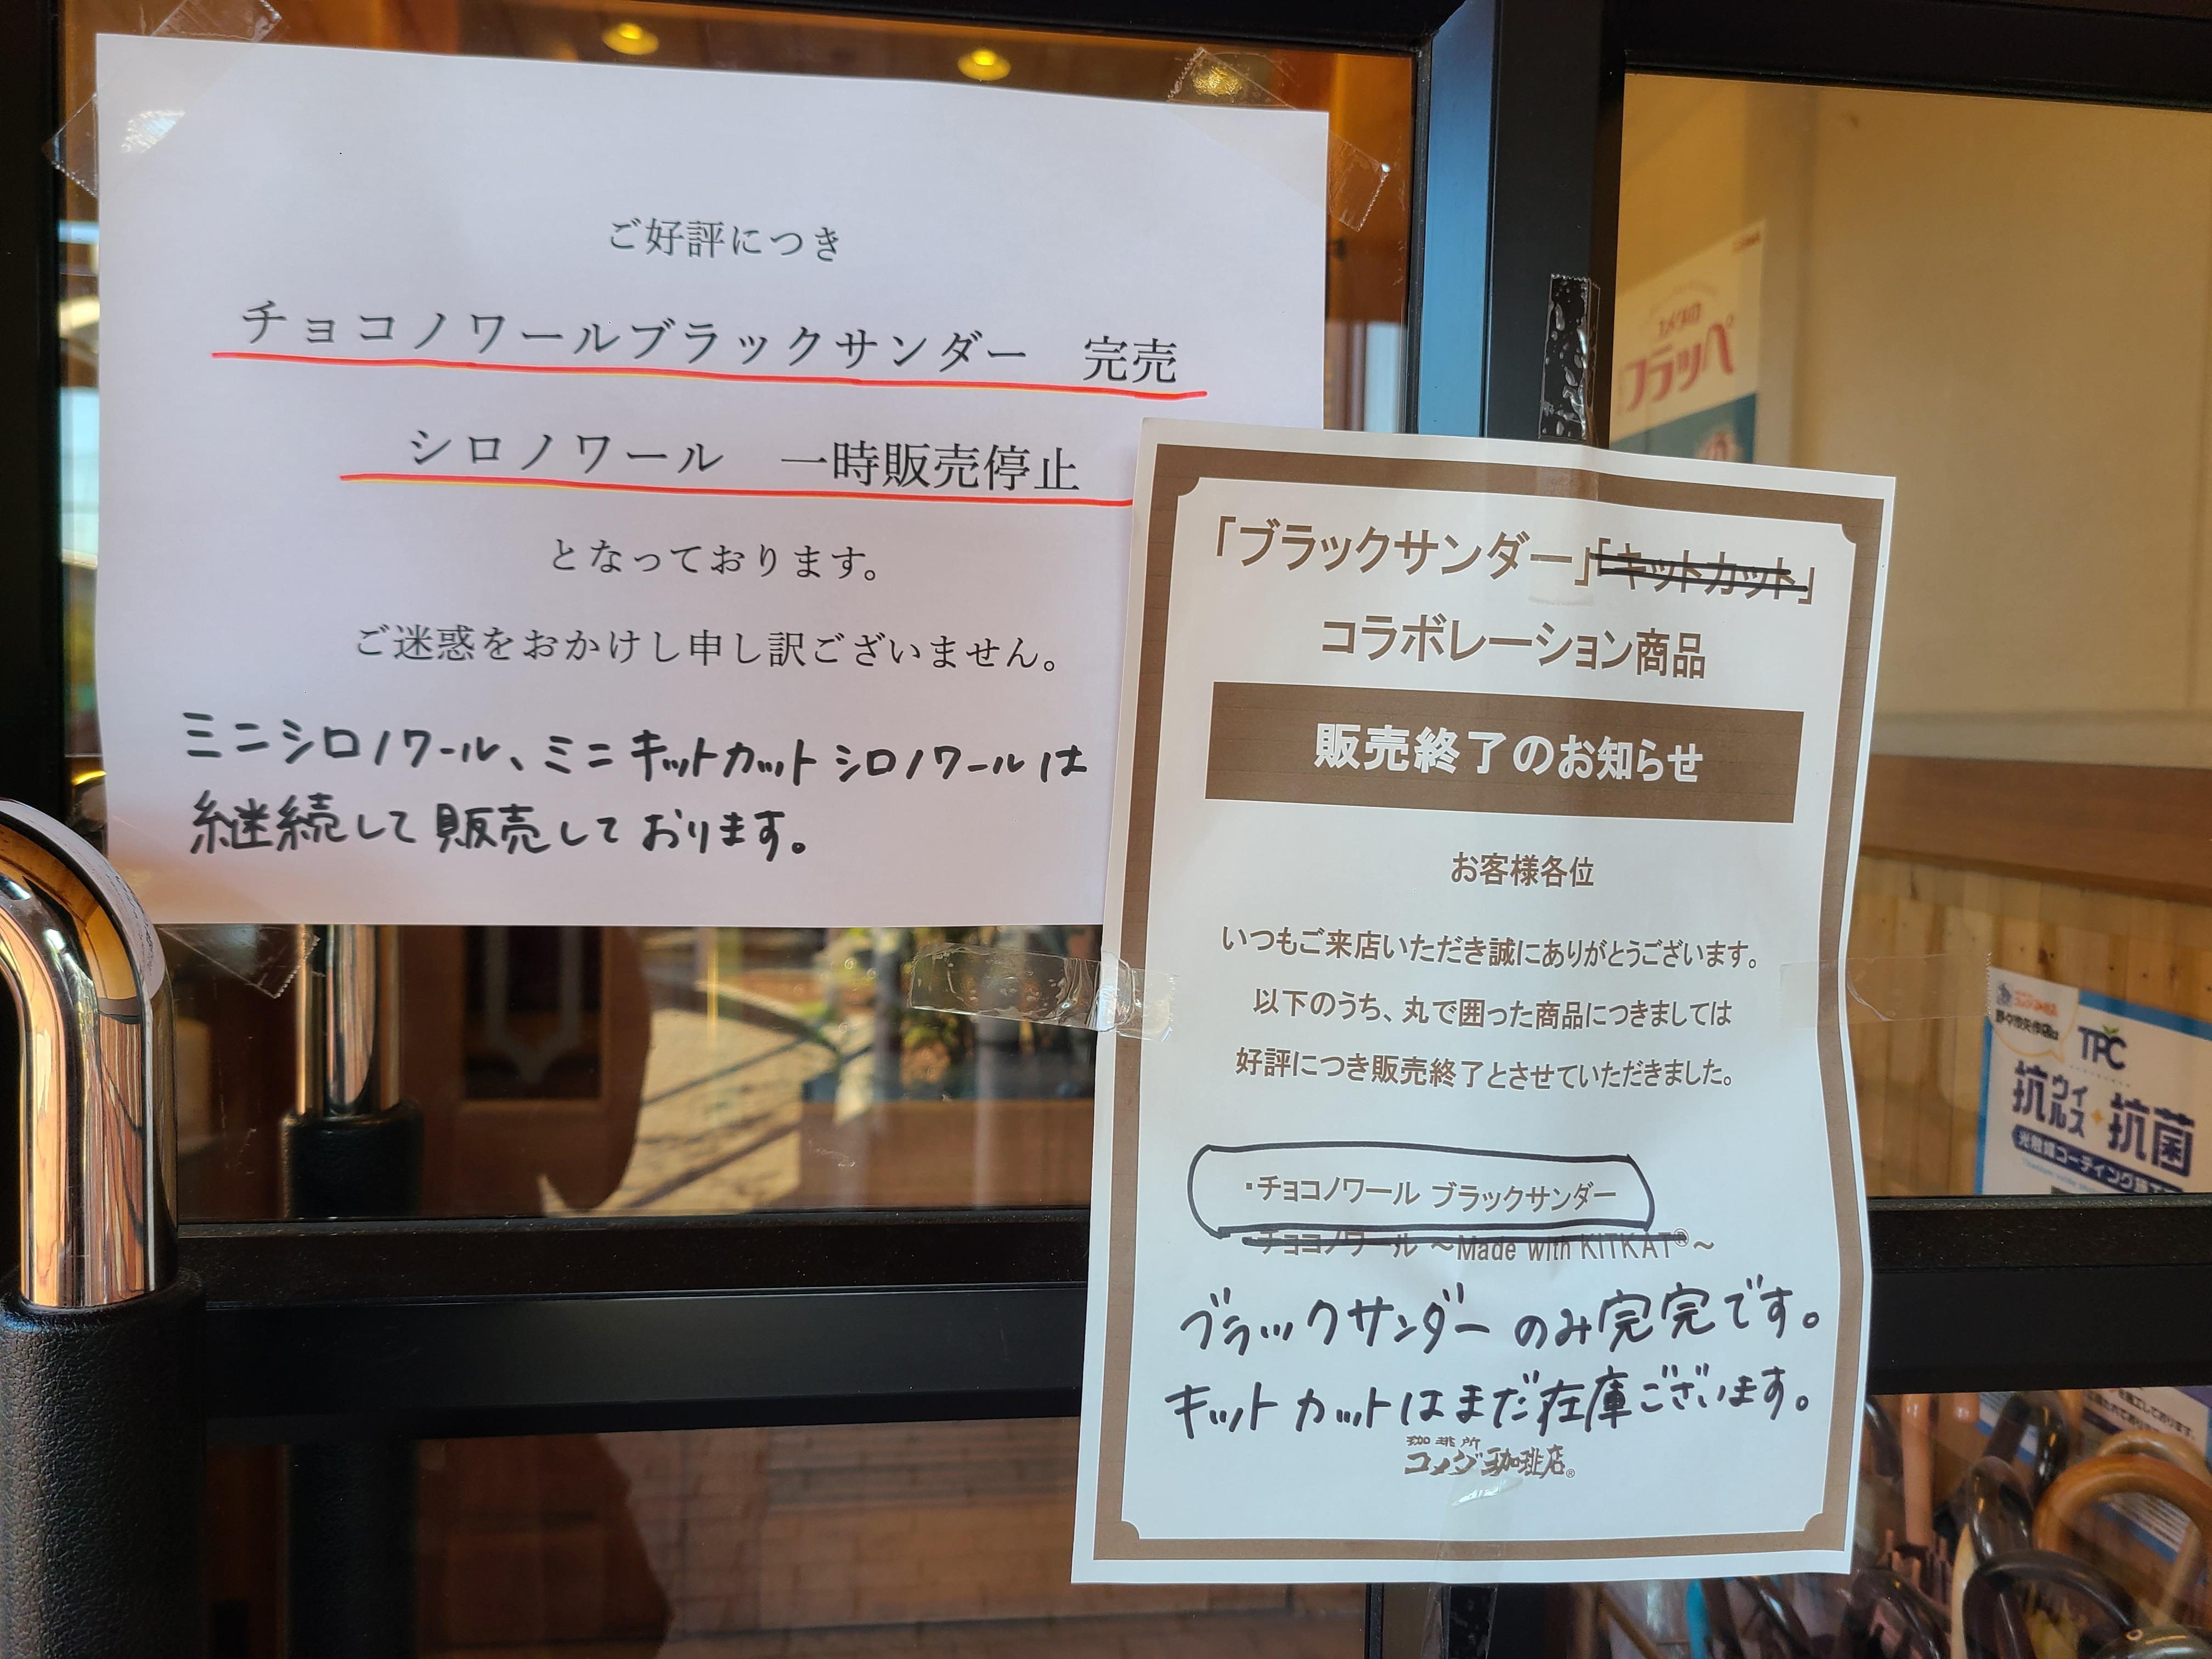 ご好評につき
チョコノワールブラックサンダー　完売
シロノワール　一時販売停止
となっております。
ご迷惑をおかけし申し訳ございません。
ミニシロノワール、ミニキットカットシロノワールは
継続して販売しております。
「ブラックサンダー」「キットカット」
コラボレーション商品
販売終了のお知らせ
お客様各位
いつもご来店いただき誠にありがとうございます。
以下のうち、丸で囲った商品につきましては
好評につき販売終了とさせていただきました。
・チョコノワール ブラックサンダー
・チョコノワール ～Made with KITKAT®～
ブラックサンダーのみ完完です。
キットカットはまだ在庫ございます。
珈琲所
コメダ珈琲店®
フラッペ
TPC
抗ウイルス 抗菌